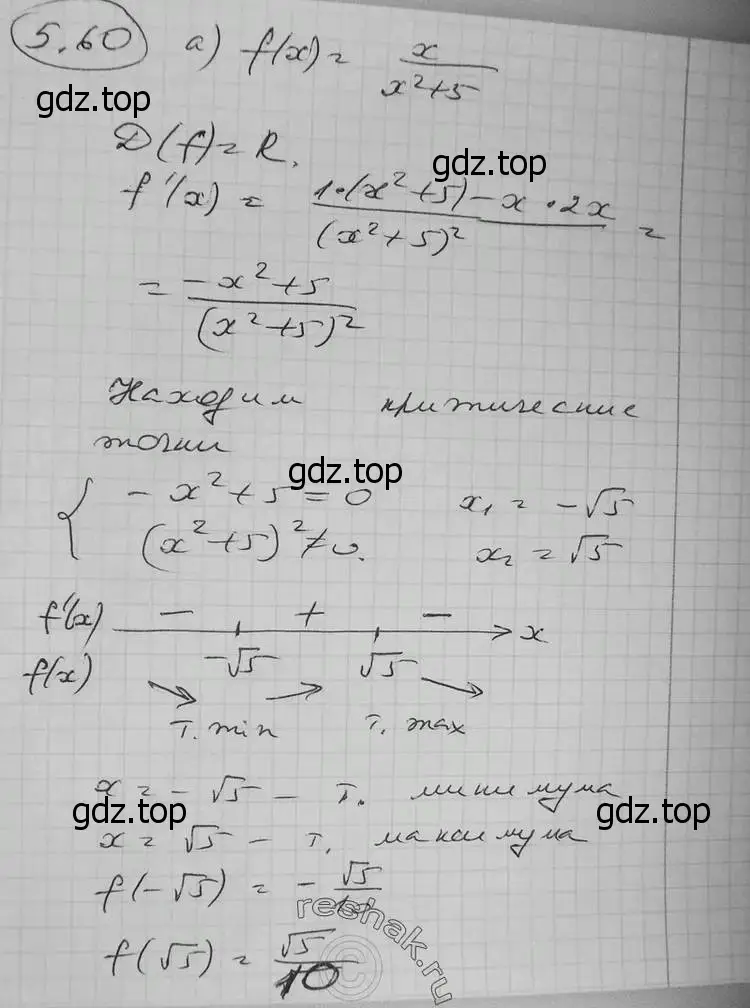 5.60 а) f(x) = x / (x² + 5)
gdz.top
D(f) = R.
gdz.top
f'(x) = (1·(x² + 5) − x·2x) / (x² + 5)² =
= (−x² + 5) / (x² + 5)²
Находим критические
точки
gdz.top
{ −x² + 5 = 0    x₁ = −√5
(x² + 5)² ≠ 0.    x₂ = √5
f'(x) − + − x
−√5 √5
f(x) ↘ ↗ ↘
т. min т. max
x = −√5 − т. минимума
gdz.top gdz.top
x = √5 − т. максимума
f(−√5) = −√5 / 10
reshak.ru
f(√5) = √5 / 10
©